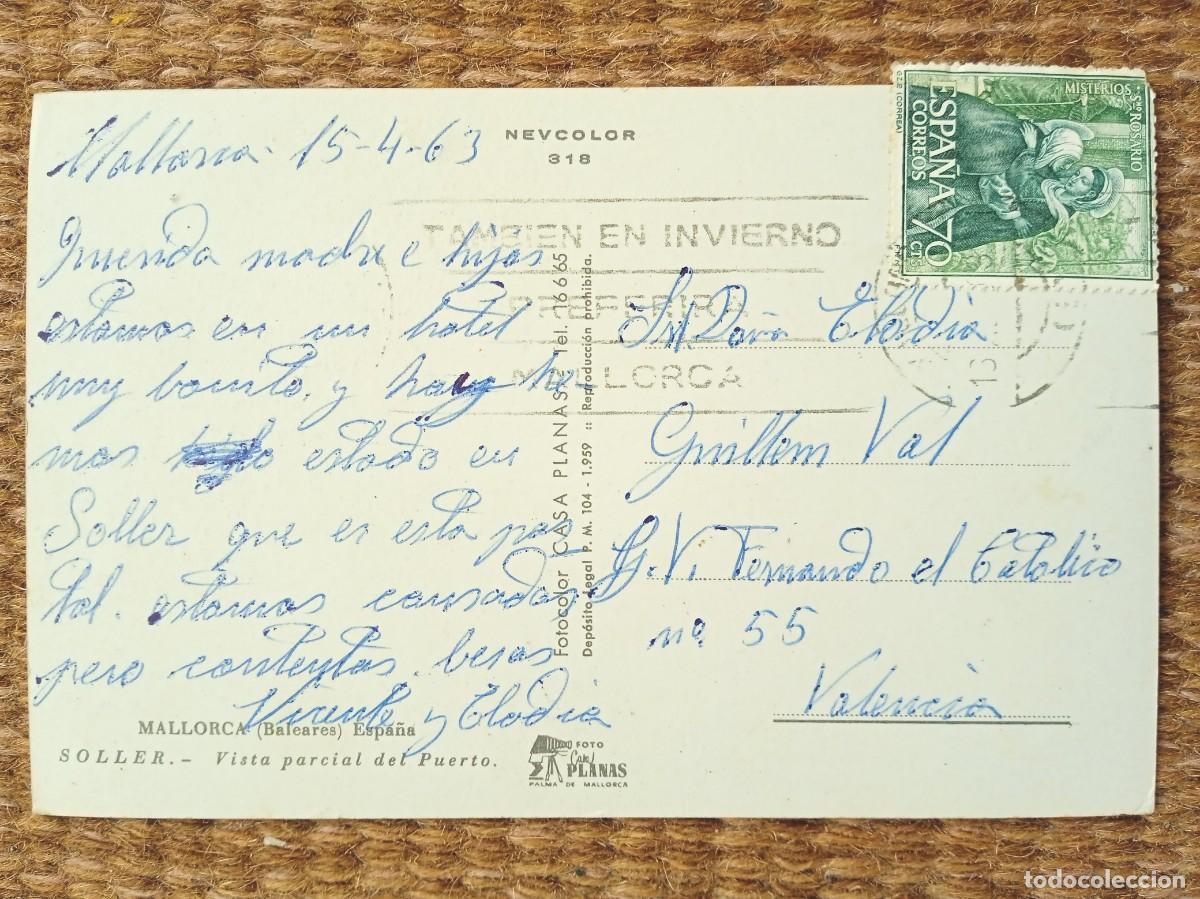 Mallorca - 15-4-63
Querida madre e hijas
estamos en un hotel
muy bonito, y hay he-
mos estado en
Soller que es esta pos
tal. estamos cansados
pero contentos. besos
Vicente y Elodia
MALLORCA (Baleares) España
SOLLER.- Vista parcial del Puerto.
NEVCOLOR
318
TAMBIEN EN INVIERNO
PREFERIRA
MALLORCA
Fotocolor CASA PLANAS Tel. 16665
Depósito Legal P.M. 104 - 1.959 :: Reproducción prohibida.
FOTO
Casa
PLANAS
PALMA DE MALLORCA
MISTERIOS Smo ROSARIO
ESPAÑA
CORREOS
70
CTS
Doña Elodia
Guillem Val
G.V. Fernando el Catolico
nº 55
Valencia
todocoleccion